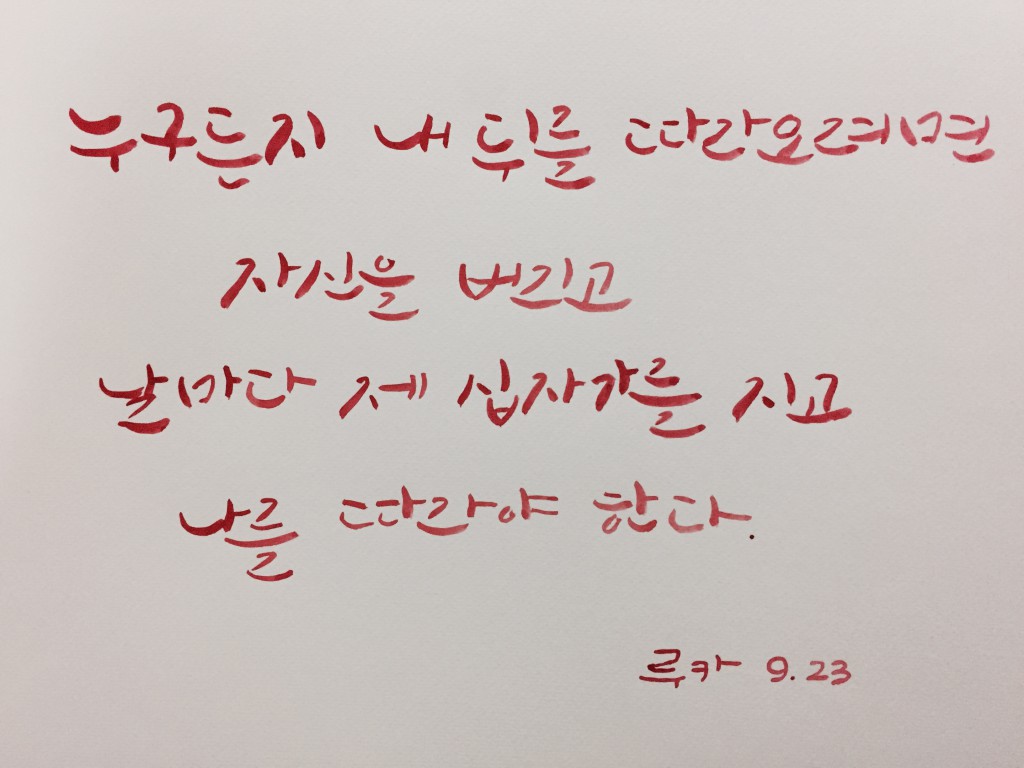 누구든지 내 뒤를 따라오려면
자신을 버리고
날마다 제 십자가를 지고
나를 따라야 한다.
루카 9.23